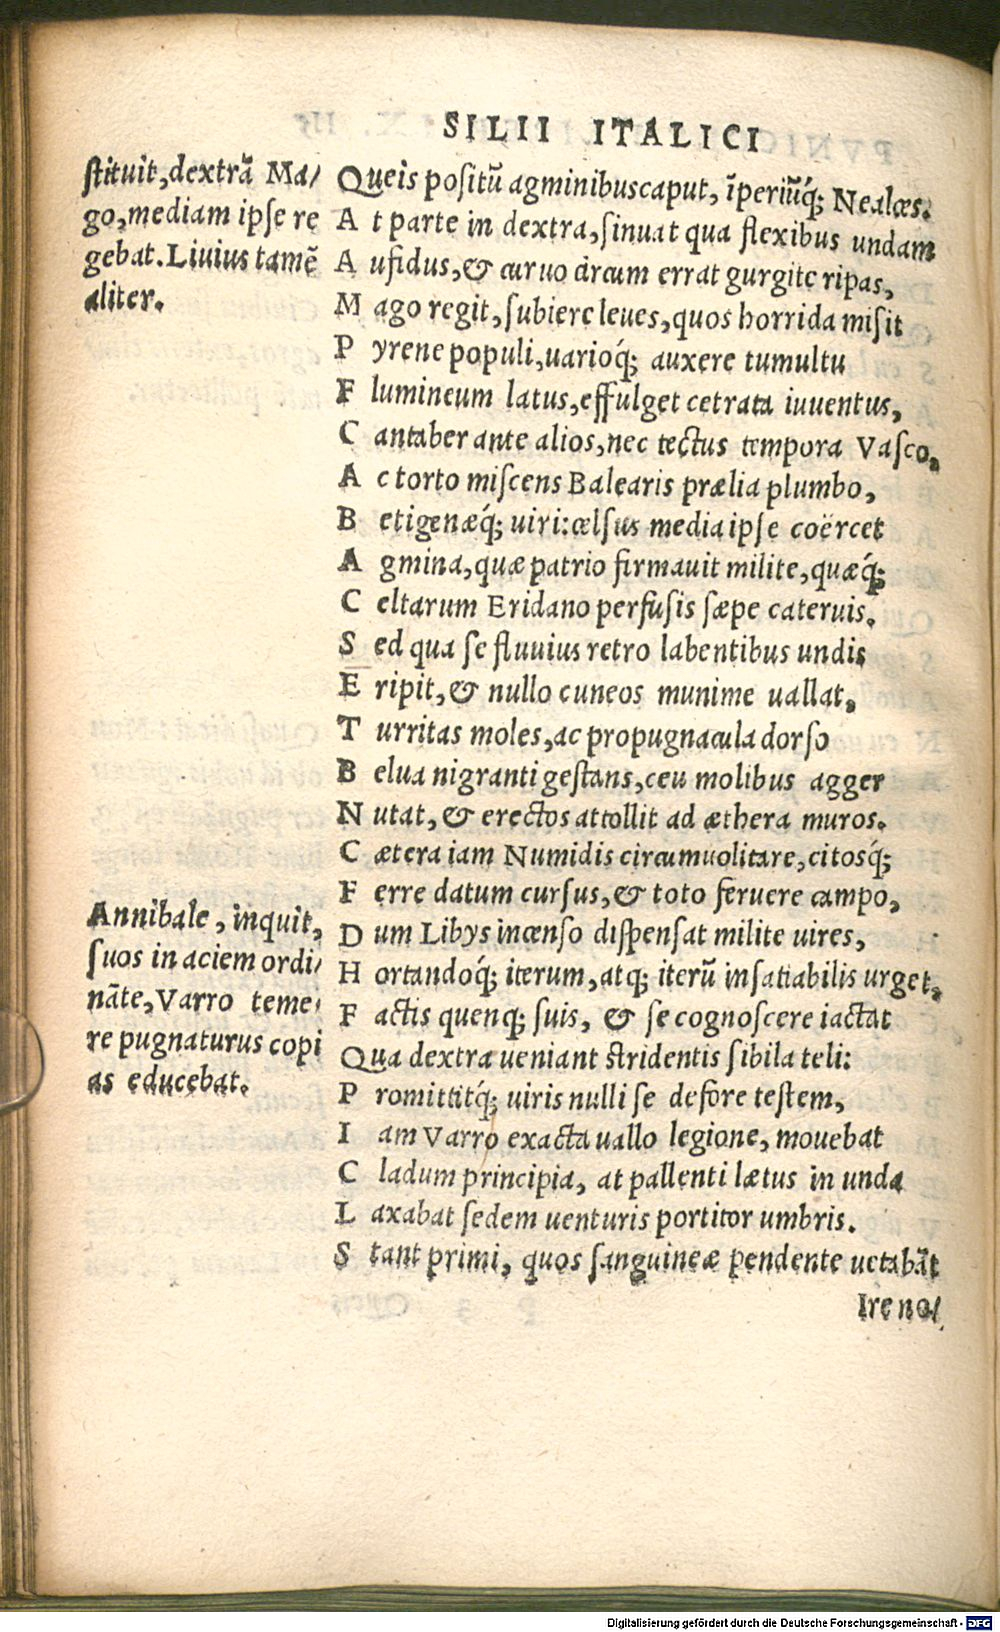 SILII ITALICI
stituit, dextrã Ma/
go, mediam ipse re
gebat. Livius tamẽ
aliter.
Queis positũ agminibus caput, ĩperiũq́; Nealces.
A t parte in dextra, sinuat qua flexibus undam
A ufidus, & curuo circum errat gurgite ripas,
M ago regit, subiere leues, quos horrida misit
P yrene populi, uarioq́; auxere tumultu
F lumineum latus, effulget cetrata iuuentus,
C antaber ante alios, nec tectus tempora Vasco,
A c torto miscens Balearis prælia plumbo,
B etigenæq́; uiri: celsus media ipse coërcet
A gmina, quæ patrio firmauit milite, quæq́;
C eltarum Eridano perfusis sæpe cateruis.
S ed qua se fluuius retro labentibus undis
E ripit, & nullo cuneos munime uallat,
T urritas moles, ac propugnacula dorso
B elua nigranti gestans, ceu molibus agger
N utat, & erectos attollit ad æthera muros.
C ætera iam Numidis circumuolitare, citosq́;
F erre datum cursus, & toto feruere campo,
D um Libys incenso dispensat milite uires,
H ortandoq́; iterum, atq; iterũ insatiabilis urget,
F actis quenq; suis, & se cognoscere iactat
Qua dextra ueniant stridentis sibila teli:
P romittitq́; uiris nulli se defore testem,
I am Varro exacta uallo legione, mouebat
C ladum principia, at pallenti lætus in unda
L axabat sedem uenturis portitor umbris.
S tant primi, quos sanguineæ pendente uetabãt
Ire no/
Annibale, inquit,
suos in aciem ordi/
nãte, Varro teme/
re pugnaturus copi
as educebat.
Digitalisierung gefördert durch die Deutsche Forschungsgemeinschaft - DFG